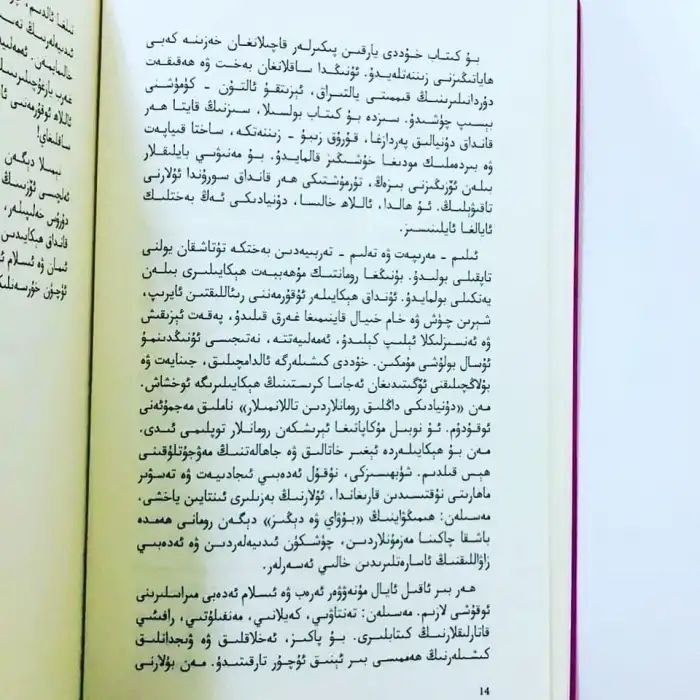 بۇ كىتاب خۇددى يارقىن پىكىرلەر قاچىلانغان خەزىنە كەبى
ھاياتىڭىزنى زىننەتلەيدۇ. ئۇنىڭدا ساقلانغان بەخت ۋە ھەقىقەت
دۇردانىلىرىنىڭ قىممىتى يالتىراق، ئېزىتقۇ ئالتۇن - كۈمۈشنى
بېسىپ چۈشىدۇ. سىزدە بۇ كىتاب بولسىلا، سىزنىڭ قايتا ھەر
قانداق دۇنيالىق پەردازغا، قۇرۇق زىبۇ - زىننەتكە، ساختا قىياپەت
ۋە بىردەملىك مودىغا خۇشىڭىز قالمايدۇ. بۇ مەنىۋىي بايلىقلار
بىلەن ئۆزىڭىزنى بېزەڭ، تۇرمۇشتىكى ھەر قانداق سورۇندا ئۇلارنى
تاقىۋېلىڭ. ئۇ ھالدا، ئاللاھ خالىسا، دۇنيادىكى ئەڭ بەختلىك
ئايالغا ئايلىنىسىز.
ئىلىم - مەرىپەت ۋە تەلىم - تەربىيەدىن بەختكە تۇتاشقان يولنى
تاپقىلى بولىدۇ. بۇنىڭغا رومانتىك مۇھەببەت ھېكايىلىرى بىلەن
يەتكىلى بولمايدۇ. ئۇنداق ھېكايىلەر ئوقۇرمەننى رىئاللىقتىن ئايرىپ،
شېرىن چۈش ۋە خام خىيال قاينىمىغا غەرق قىلىدۇ، پەقەت ئېزىقىش
ۋە ئەنسىزلىكلا ئېلىپ كېلىدۇ، ئەمەلىيەتتە، نەتىجىسى ئۇنىڭدىنمۇ
ئۇسال بولۇشى مۇمكىن. خۇددى كىشىلەرگە ئالدامچىلىق، جىنايەت ۋە
بۇلاڭچىلىقنى ئۆگىتىدىغان ئەجاسا كرىستىنىڭ ھېكايىلىرىگە ئوخشاش.
مەن «دۇنيادىكى داڭلىق رومانلاردىن تاللانمىلار» ناملىق مەجمۇئەنى
ئوقۇدۇم. ئۇ نوبېل مۇكاپاتىغا ئېرىشكەن رومانلار توپلىمى ئىدى.
مەن بۇ ھېكايىلەردە ئېغىر خاتالىق ۋە جاھالەتنىڭ مەۋجۇتلۇقىنى
ھېس قىلدىم. شۈبھىسىزكى، نۇقۇل ئەدەبىي ئىجادىيەت ۋە تەسۋىر
ماھارىتى نۇقتىسىدىن قارىغاندا، ئۇلارنىڭ بەزىلىرى ئىنتايىن ياخشى،
مەسىلەن: ھېمىڭۋاينىڭ «بوۋاي ۋە دېڭىز» دېگەن رومانى ھەمدە
باشقا چاكىنا مەزمۇنلاردىن، چۈشكۈن ئىدىيەلەردىن ۋە ئەدەبىي
زاۋاللىقنىڭ ئاسارەتلىرىدىن خالىي ئەسەرلەر.
ھەر بىر ئاقىل ئايال مۇنەۋۋەر ئەرەب ۋە ئىسلام ئەدەبى مىراسلىرىنى
ئوقۇشى لازىم. مەسىلەن: تەنتاۋىي، كەيلانىي، مەنفىلۇتىي، رافىئىي
قاتارلىقلارنىڭ كىتابلىرى. بۇ پاكىز، ئەخلاقلىق ۋە ۋىجدانلىق
كىشىلەرنىڭ ھەممىسى بىر ئېنىق ئۇچۇر تارقىتىدۇ. مەن بۇلارنى
14